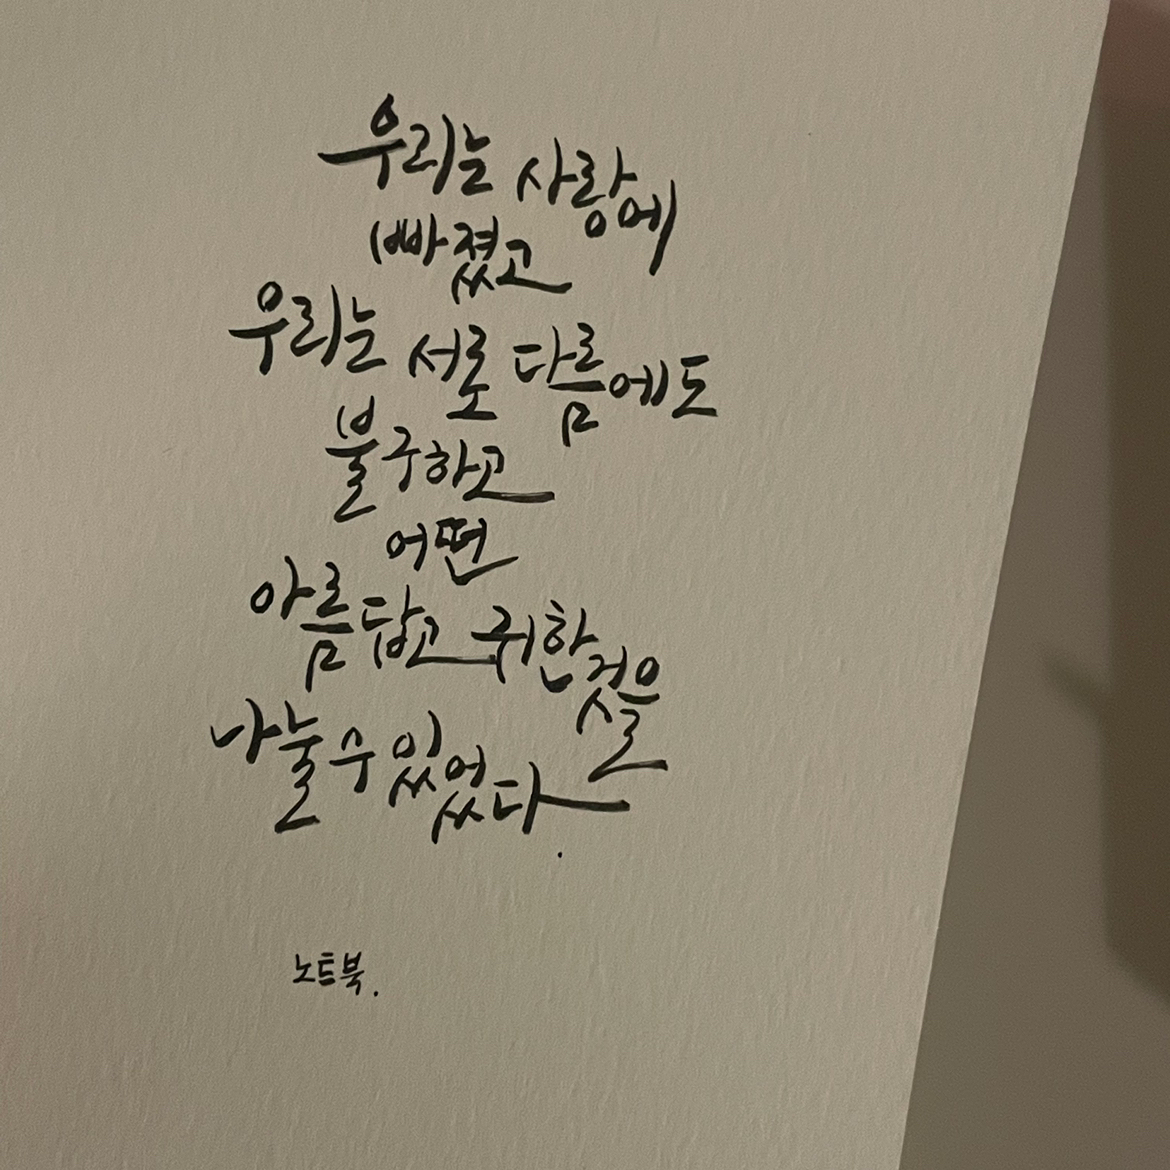 우리는 사랑에
빠졌고
우리는 서로 다름에도
불구하고
어떤
아름답고 귀한것을
나눌 수 있었다.
노트북.